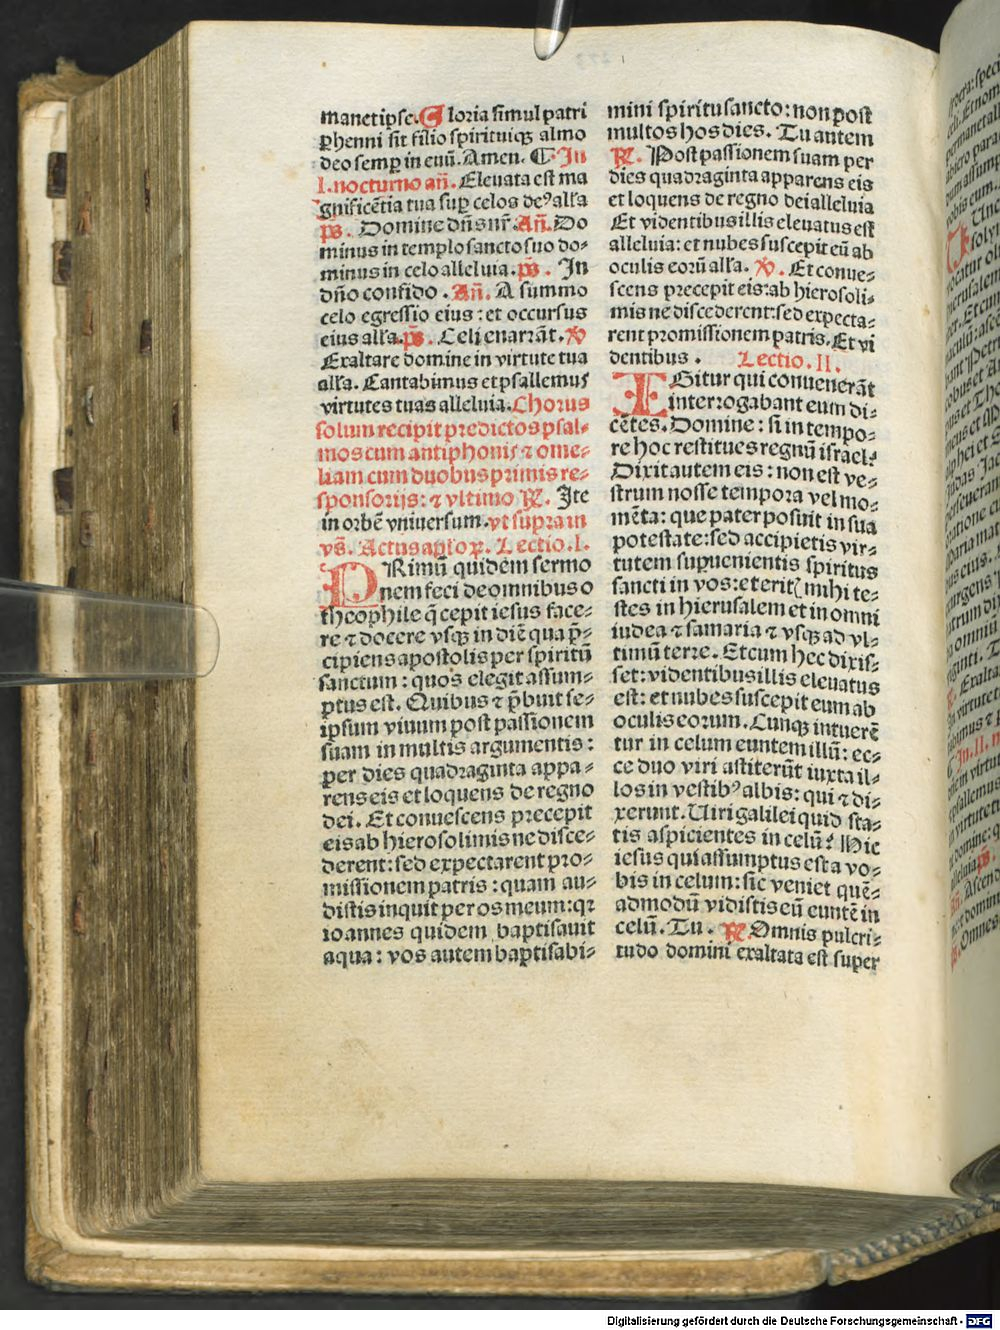 manet ipse. Gloria simul patri
ꝑhenni sit filio spirituiqꝫ almo
deo semꝑ in euū. Amen. ¶ In
I. nocturno añ. Eleuata est ma
gnificētia tua suꝑ celos deꝰ alľa
p̄s. Domine dñs nr̄. Añ. Do
minus in templo sancto suo do⸗
minus in celo alleluia. p̄s. In
dño confido. Añ. A summo
celo egressio eius: et occursus
eius alľa. p̄s. Celi enarrāt. ℣
Exaltare domine in virtute tua
alľa. Cantabimus et psallemus
virtutes tuas alleluia. Chorus
solum recipit predictos psal⸗
mos cum antiphonis ⁊ ome⸗
liam cum duobus primis re⸗
sponsorijs: ⁊ vltimo ℟. Ite
in orbē vniuersum. vt supra in
vs̄. Actus aploꝝ. Lectio. I.
PRimū quidem sermo
nem feci de omnibus o
theophile q̄ cepit iesus face⸗
re ⁊ docere vsqꝫ in diē qua p̄⸗
cipiens apostolis per spiritū
sanctum: quos elegit assum⸗
ptus est. Quibus ⁊ p̄buit se⸗
ipsum viuum post passionem
suam in multis argumentis:
per dies quadraginta appa⸗
rens eis et loquens de regno
dei. Et conuescens precepit
eis ab hierosolimis ne disce⸗
derent: sed expectarent pro⸗
missionem patris: quam au⸗
distis inquit per os meum: qꝛ
ioannes quidem baptisauit
aqua: vos autem baptisabi⸗
mini spiritu sancto: non post
multos hos dies. Tu autem
℟. Post passionem suam per
dies quadraginta apparens eis
et loquens de regno dei alleluia
Et videntibus illis eleuatus est
alleluia: et nubes suscepit eū ab
oculis eorū alľa. ℣. Et conue⸗
scens precepit eis: ab hierosoli⸗
mis ne discederent: sed expecta⸗
rent promissionem patris. Et vi
dentibus. Lectio. II.
IGitur qui conuenerāt
interrogabant eum di⸗
cētes. Domine: si in tempo⸗
re hoc restitues regnū israel?
Dixit autem eis: non est ve⸗
strum nosse tempora vel mo⸗
mēta: que pater posuit in sua
potestate: sed accipietis vir⸗
tutem suꝑuenientis spiritus
sancti in vos: et eritꝭ mihi te⸗
stes in hierusalem et in omni
iudea ⁊ samaria ⁊ vsqꝫ ad vl⸗
timū terre. Et cum hec dixis⸗
set: videntibus illis eleuatus
est: et nubes suscepit eum ab
oculis eorum. Cunqꝫ intuerē
tur in celum euntem illū: ec⸗
ce duo viri astiterūt iuxta il⸗
los in vestibꝰ albis: qui ⁊ di⸗
xerunt. Uiri galilei quid sta⸗
tis aspicientes in celū? Hic
iesus qui assumptus est a vo⸗
bis in celum: sic veniet quē⸗
admodū vidistis eū euntē in
celū. Tu. ℟. Omnis pulcri⸗
tudo domini exaltata est super
Digitalisierung gefördert durch die Deutsche Forschungsgemeinschaft - DFG